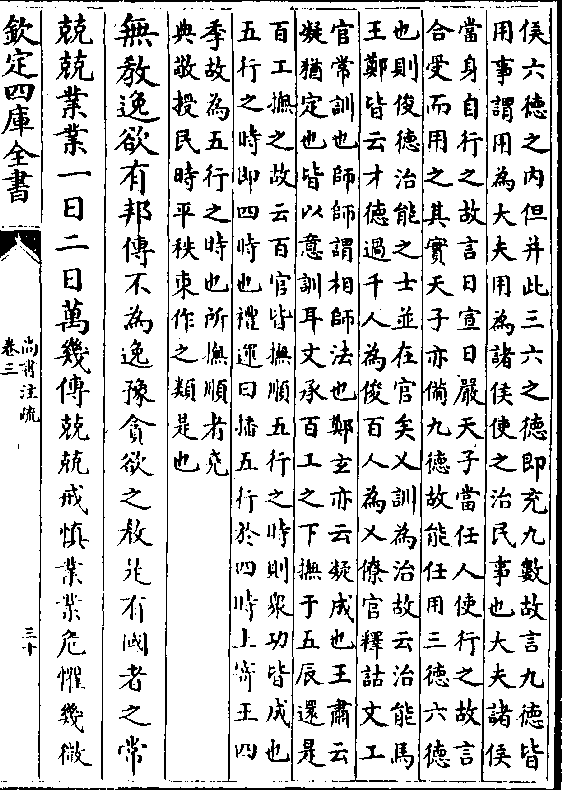 侯六德之内但并此三六之德即充九數故言九德皆
用事謂用為大夫用為諸侯使之治民事也大夫諸侯
當身自行之故言日宣日嚴天子當任人使行之故言
合受而用之其實天子亦備九德故能任用三德六德
也則俊德治能之士並在官矣乂訓為治故云治能馬
王鄭皆云才德過千人為俊百人為乂僚官釋詁文工
官常訓也師師謂相師法也鄭玄亦云凝成也王肅云
凝猶定也皆以意訓耳文承百工之下撫于五辰還是
百工撫之故云百官皆撫順五行之時則衆功皆成也
五行之時即四時也禮運曰播五行於四時土寄王四
季故為五行之時也所撫順者堯
典敬授民時平秩東作之類是也
無教逸欲有邦傳不為逸豫貪欲之教是有國者之常
兢兢業業一日二日萬幾傳兢兢戒慎業業危懼幾微
欽定四庫全書
尚書注疏
卷三
三十